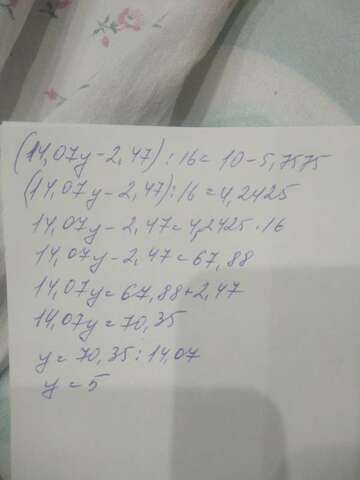 (14,07y-2,47):16=10-5,7575
(14,07y-2,47):16=4,2425
14,07y-2,47=4,2425·16
14,07y-2,47=67,88
14,07y=67,88+2,47
14,07y=70,35
y=70,35:14,07
y=5